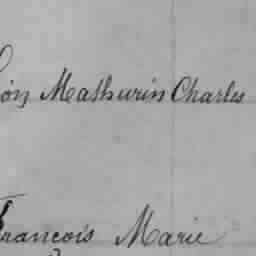 Mathurin Charles
François Marie